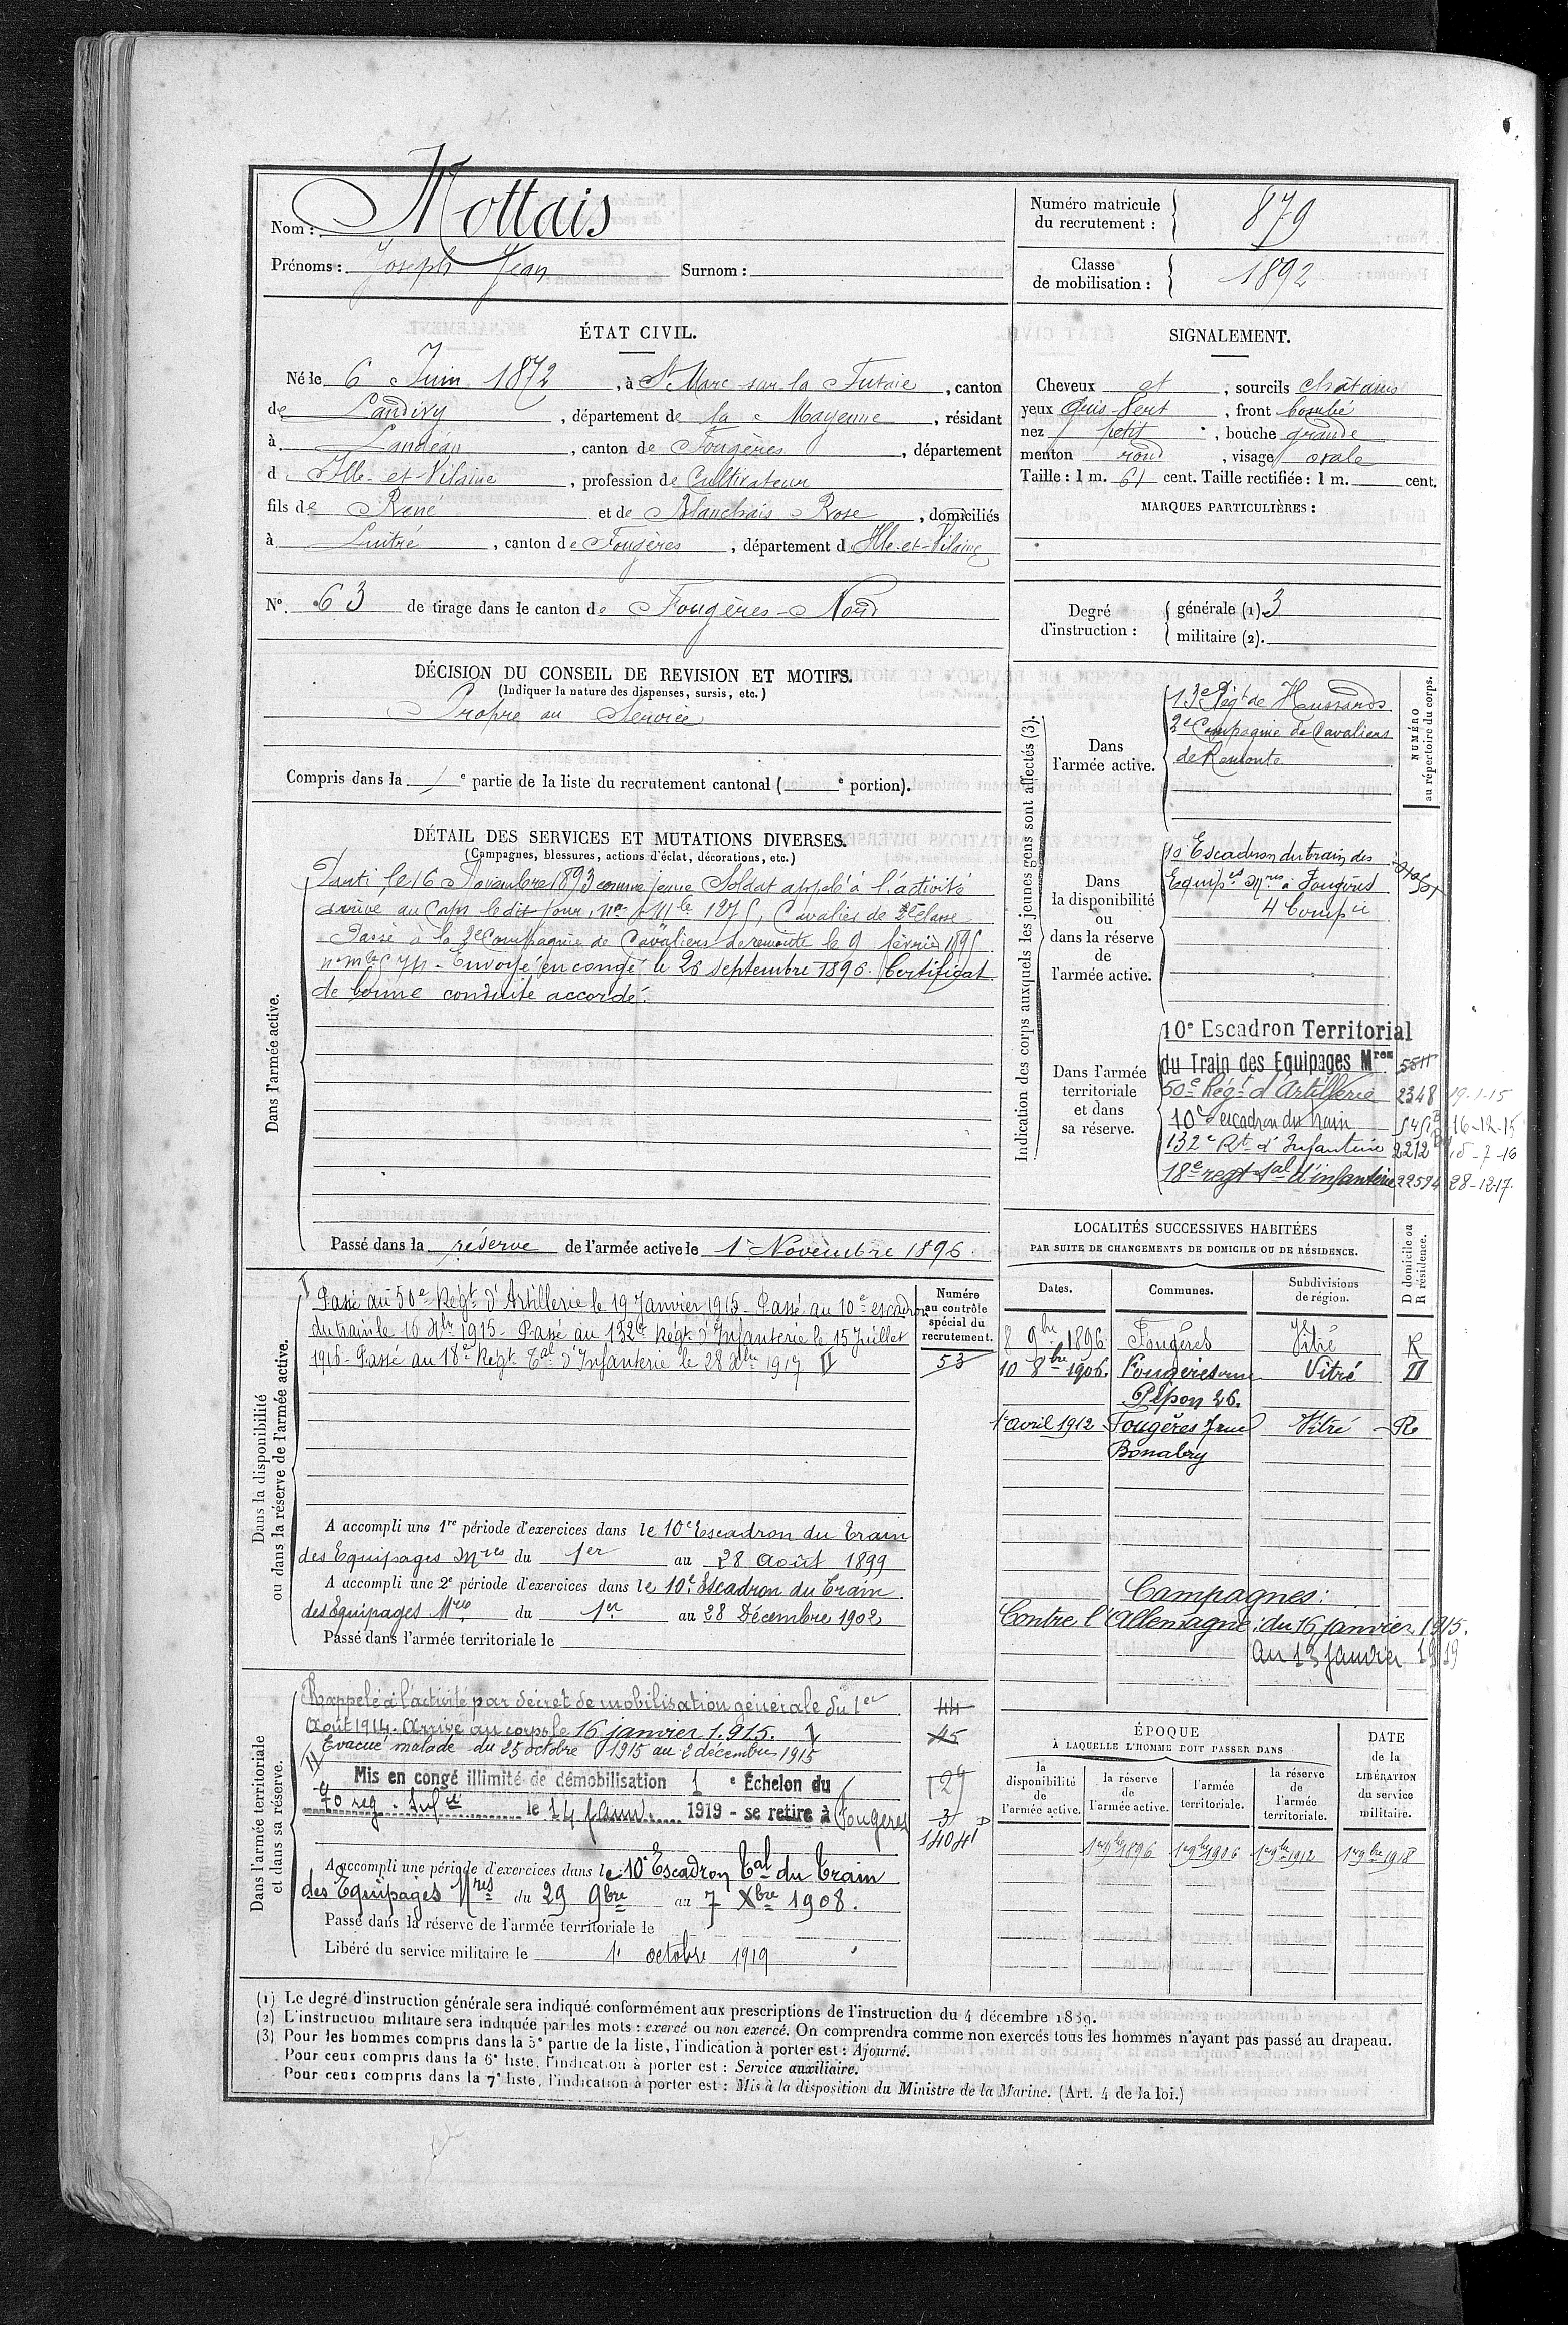 Nom : Mottais
Prénoms : Joseph Jean Surnom :
Numéro matricule du recrutement : 879
Classe de mobilisation : 1892
ÉTAT CIVIL.
Né le 6 Juin 1872, à St Mars sur la Futaie, canton
de Landivy, département de la Mayenne, résidant
à Landéan, canton de Fougères, département
d Ille-et-Vilaine, profession de Cultivateur
fils de René et de Blanchais Rose, domiciliés
à Luitré, canton de Fougères, département d Ille-et-Vilaine
No. 63 de tirage dans le canton de Fougères-Nord
SIGNALEMENT.
Cheveux et, sourcils châtains
yeux Gris-Vert, front bombé
nez petit, bouche grande
menton rond, visage ovale
Taille : 1 m. 61 cent. Taille rectifiée : 1 m. cent.
MARQUES PARTICULIÈRES :
Degré d'instruction : générale (1). 3
militaire (2).
DÉCISION DU CONSEIL DE REVISION ET MOTIFS.
(Indiquer la nature des dispenses, sursis, etc.)
Propre au Service
Compris dans la 1e partie de la liste du recrutement cantonal ( e portion).
DÉTAIL DES SERVICES ET MUTATIONS DIVERSES.
(Campagnes, blessures, actions d'éclat, décorations, etc.)
Dans l'armée active.
Parti le 16 Novembre 1893 comme jeune Soldat appelé à l'activité
arrivé au Corps le dit jour, no Mle 1275, Cavalier de 2e Classe
Passé à la 2e Compagnie de Cavaliers de remonte le 9 février 1895
Envoyé en congé le 26 septembre 1896. Certificat
de bonne conduite accordé.
Passé dans la réserve de l'armée active le 1er Novembre 1896.
Indication des corps auxquels les jeunes gens sont affectés (3).
NUMÉRO au répertoire du corps.
Dans l'armée active.
13e Régt de Hussards
2e Compagnie de Cavaliers
de Remonte
Dans la disponibilité ou dans la réserve de l'armée active.
10e Escadron du train des
Equipes Mres à Fougères
4 Compie
Dans l'armée territoriale et dans sa réserve.
10e Escadron Territorial
du Train des Equipages Mres
50e Régt d'Artillerie 2348 19-1-15
10e escadron du train 16-12-15
132e Rt d'Infanterie 2212 15-7-16
18e regt tal d'infanterie 22594 28-12-17.
Dans la disponibilité ou dans la réserve de l'armée active.
Passé au 50e Régt d'Artillerie le 19 Janvier 1915 - Passé au 10e escadron
du train le 16 Xbre 1915 - Passé au 132e Régt d'Infanterie le 15 Juillet
1916 - Passé au 18e Régt Tal d'Infanterie le 28 Xbre 1917 II
Numéro au contrôle spécial du recrutement.
53
A accompli une 1re période d'exercices dans le 10e Escadron du Train
des Equipages Mres du 1er au 28 Août 1899
A accompli une 2e période d'exercices dans le 10e Escadron du Train
des Equipages Mres du 1er au 28 Décembre 1902
Passé dans l'armée territoriale le
LOCALITÉS SUCCESSIVES HABITÉES
PAR SUITE DE CHANGEMENTS DE DOMICILE OU DE RÉSIDENCE.
Dates. Communes. Subdivisions de région. D domicile ou R résidence.
8 9bre 1896 Fougères Vitré R
10 8bre 1906. Fougères rue Vitré D
Pépon 26.
1er avril 1912 Fougères 7 rue Vitré R
Bonabry
Campagnes :
Contre l'Allemagne : du 16 janvier 1915.
au 13 janvier 1919
Dans l'armée territoriale et dans sa réserve.
Rappelé à l'activité par décret de mobilisation générale du 1er
Août 1914. Arrivé au corps le 16 janvier 1.915. I
Evacué malade du 25 octobre 1915 au 2 décembre 1915
Mis en congé illimité de démobilisation 1e Échelon du
70 reg. Infie le 14 janv. 1919 - se retire à Fougères
44
45
A accompli une période d'exercices dans le 10e Escadron Tal du Train
des Equipages Mres du 29 9bre au 7 Xbre 1908.
Passé dans la réserve de l'armée territoriale le
Libéré du service militaire le 1er octobre 1919
ÉPOQUE
À LAQUELLE L'HOMME DOIT PASSER DANS
la disponibilité de l'armée active. la réserve de l'armée active. l'armée territoriale. la réserve de l'armée territoriale.
DATE de la LIBÉRATION du service militaire.
1er 9bre 1896 1er 9bre 1906 1er 9bre 1912 1er 9bre 1918
(1) Le degré d'instruction générale sera indiqué conformément aux prescriptions de l'instruction du 4 décembre 1889.
(2) L'instruction militaire sera indiquée par les mots : exercé ou non exercé. On comprendra comme non exercés tous les hommes n'ayant pas passé au drapeau.
(3) Pour les hommes compris dans la 5e partie de la liste, l'indication à porter est : Ajourné.
Pour ceux compris dans la 6e liste, l'indication à porter est : Service auxiliaire.
Pour ceux compris dans la 7e liste, l'indication à porter est : Mis à la disposition du Ministre de la Marine. (Art. 4 de la loi.)